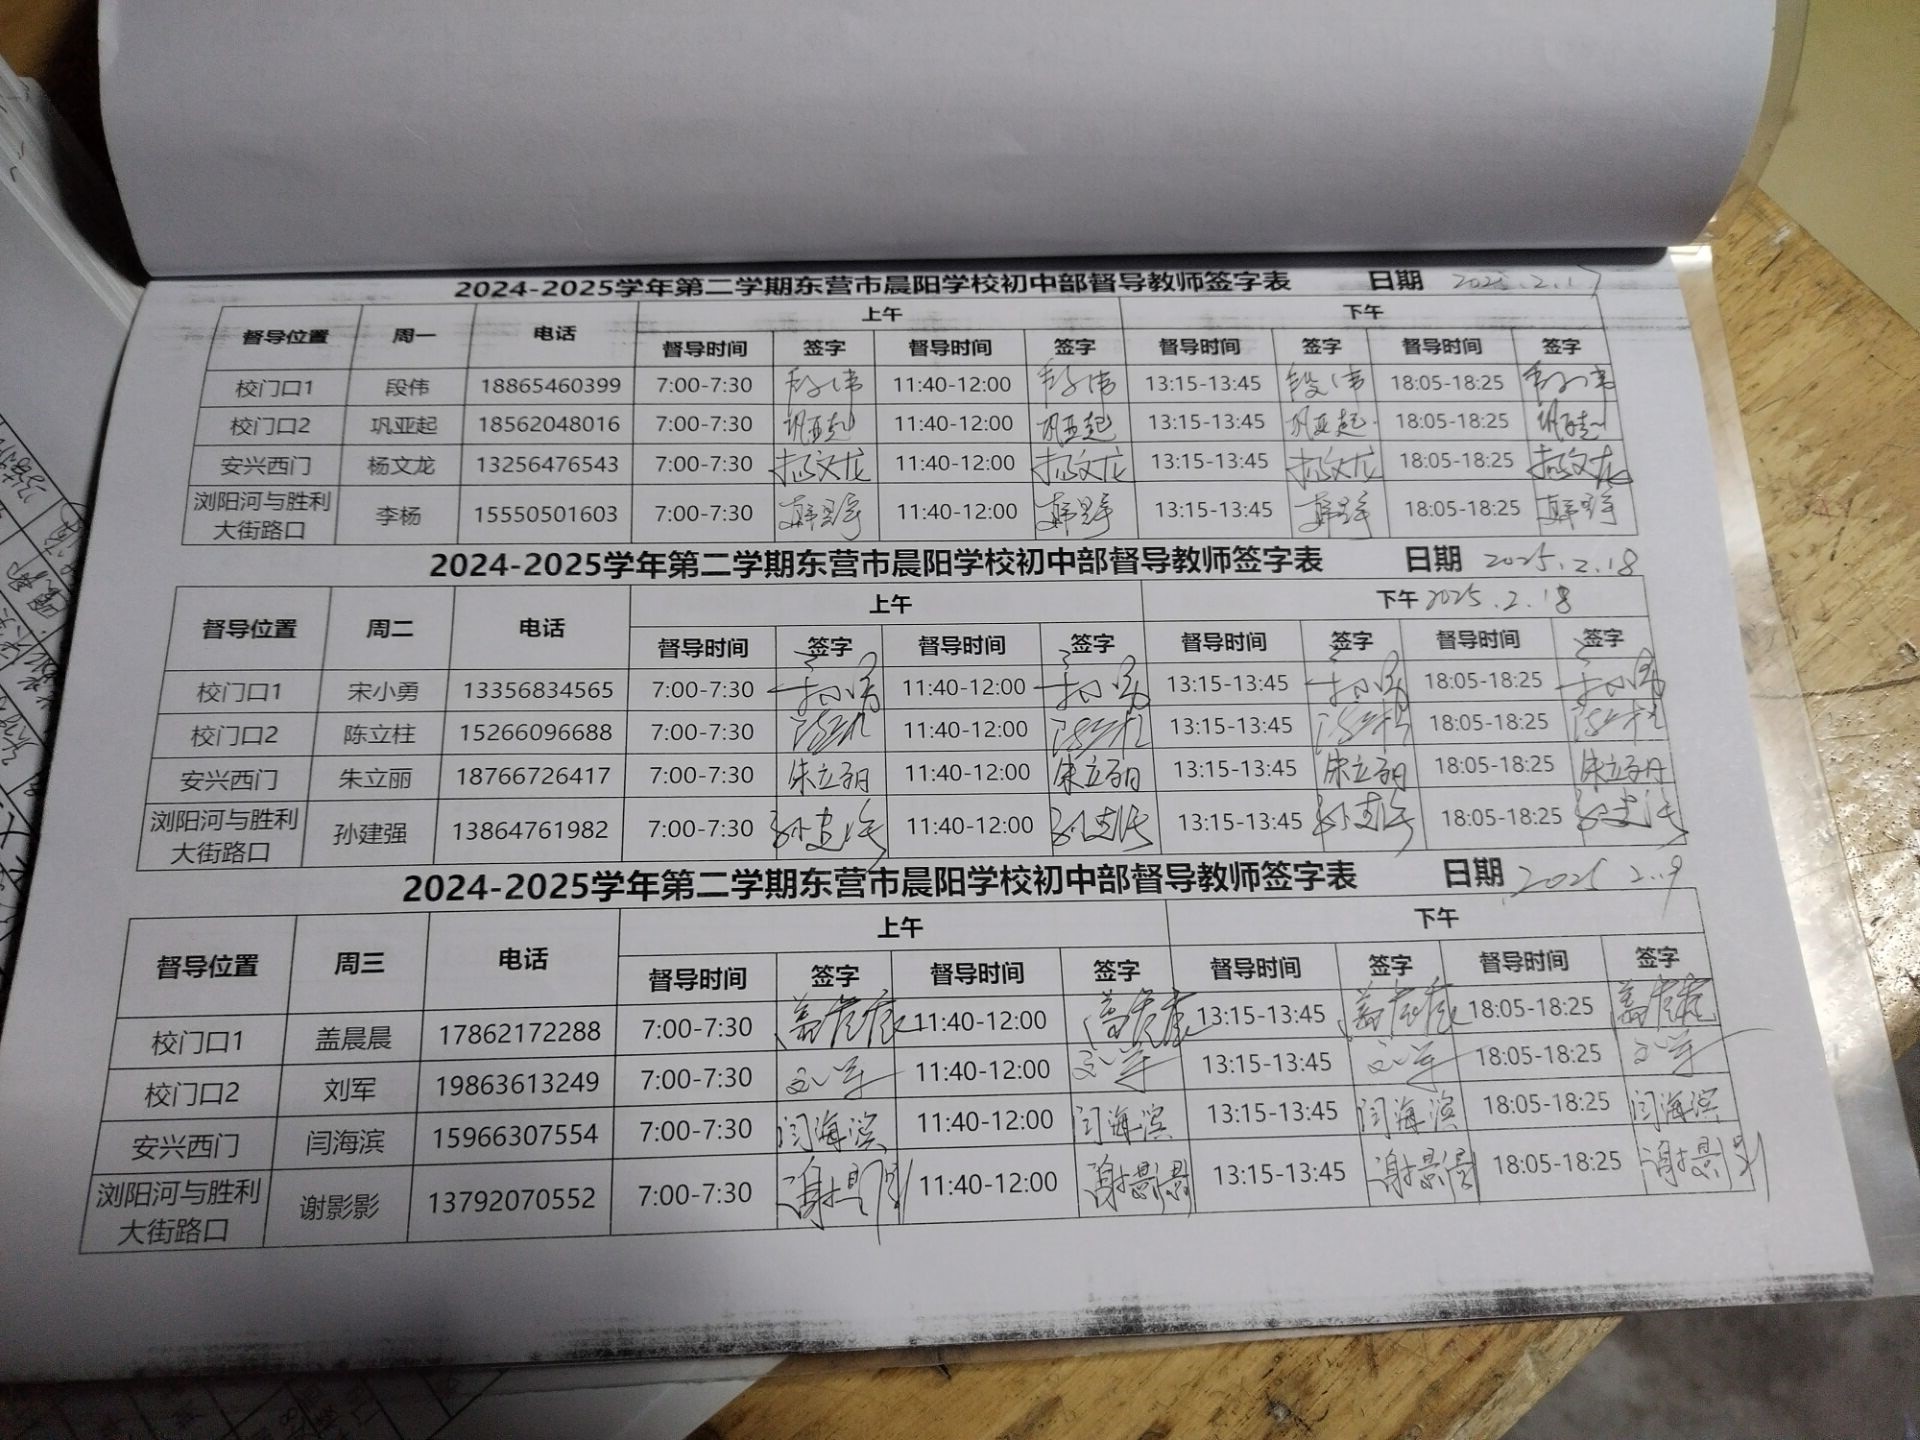 2024-2025学年第二学期东营市晨阳学校初中部督导教师签字表 日期 2025.2.17
督导位置 周一 电话 上午 下午
督导时间 签字 督导时间 签字 督导时间 签字 督导时间 签字
校门口1 段伟 18865460399 7:00-7:30 段伟 11:40-12:00 段伟 13:15-13:45 段伟 18:05-18:25 段伟
校门口2 巩亚起 18562048016 7:00-7:30 巩亚起 11:40-12:00 巩亚起 13:15-13:45 巩亚起 18:05-18:25 巩亚起
安兴西门 杨文龙 13256476543 7:00-7:30 杨文龙 11:40-12:00 杨文龙 13:15-13:45 杨文龙 18:05-18:25 杨文龙
浏阳河与胜利
大街路口 李杨 15550501603 7:00-7:30 11:40-12:00 13:15-13:45 18:05-18:25
2024-2025学年第二学期东营市晨阳学校初中部督导教师签字表 日期 2025.2.18
督导位置 周二 电话 上午 下午 2025.2.18
督导时间 签字 督导时间 签字 督导时间 签字 督导时间 签字
校门口1 宋小勇 13356834565 7:00-7:30 宋小勇 11:40-12:00 宋小勇 13:15-13:45 宋小勇 18:05-18:25 宋小勇
校门口2 陈立柱 15266096688 7:00-7:30 陈立柱 11:40-12:00 陈立柱 13:15-13:45 陈立柱 18:05-18:25 陈立柱
安兴西门 朱立丽 18766726417 7:00-7:30 朱立丽 11:40-12:00 朱立丽 13:15-13:45 朱立丽 18:05-18:25 朱立丽
浏阳河与胜利
大街路口 孙建强 13864761982 7:00-7:30 孙建强 11:40-12:00 孙建强 13:15-13:45 孙建强 18:05-18:25 孙建强
2024-2025学年第二学期东营市晨阳学校初中部督导教师签字表 日期 2025 2.19
督导位置 周三 电话 上午 下午
督导时间 签字 督导时间 签字 督导时间 签字 督导时间 签字
校门口1 盖晨晨 17862172288 7:00-7:30 盖晨晨 11:40-12:00 盖晨晨 13:15-13:45 盖晨晨 18:05-18:25 盖晨晨
校门口2 刘军 19863613249 7:00-7:30 刘军 11:40-12:00 刘军 13:15-13:45 刘军 18:05-18:25 刘军
安兴西门 闫海滨 15966307554 7:00-7:30 闫海滨 11:40-12:00 闫海滨 13:15-13:45 闫海滨 18:05-18:25 闫海滨
浏阳河与胜利
大街路口 谢影影 13792070552 7:00-7:30 谢影影 11:40-12:00 谢影影 13:15-13:45 谢影影 18:05-18:25 谢影影